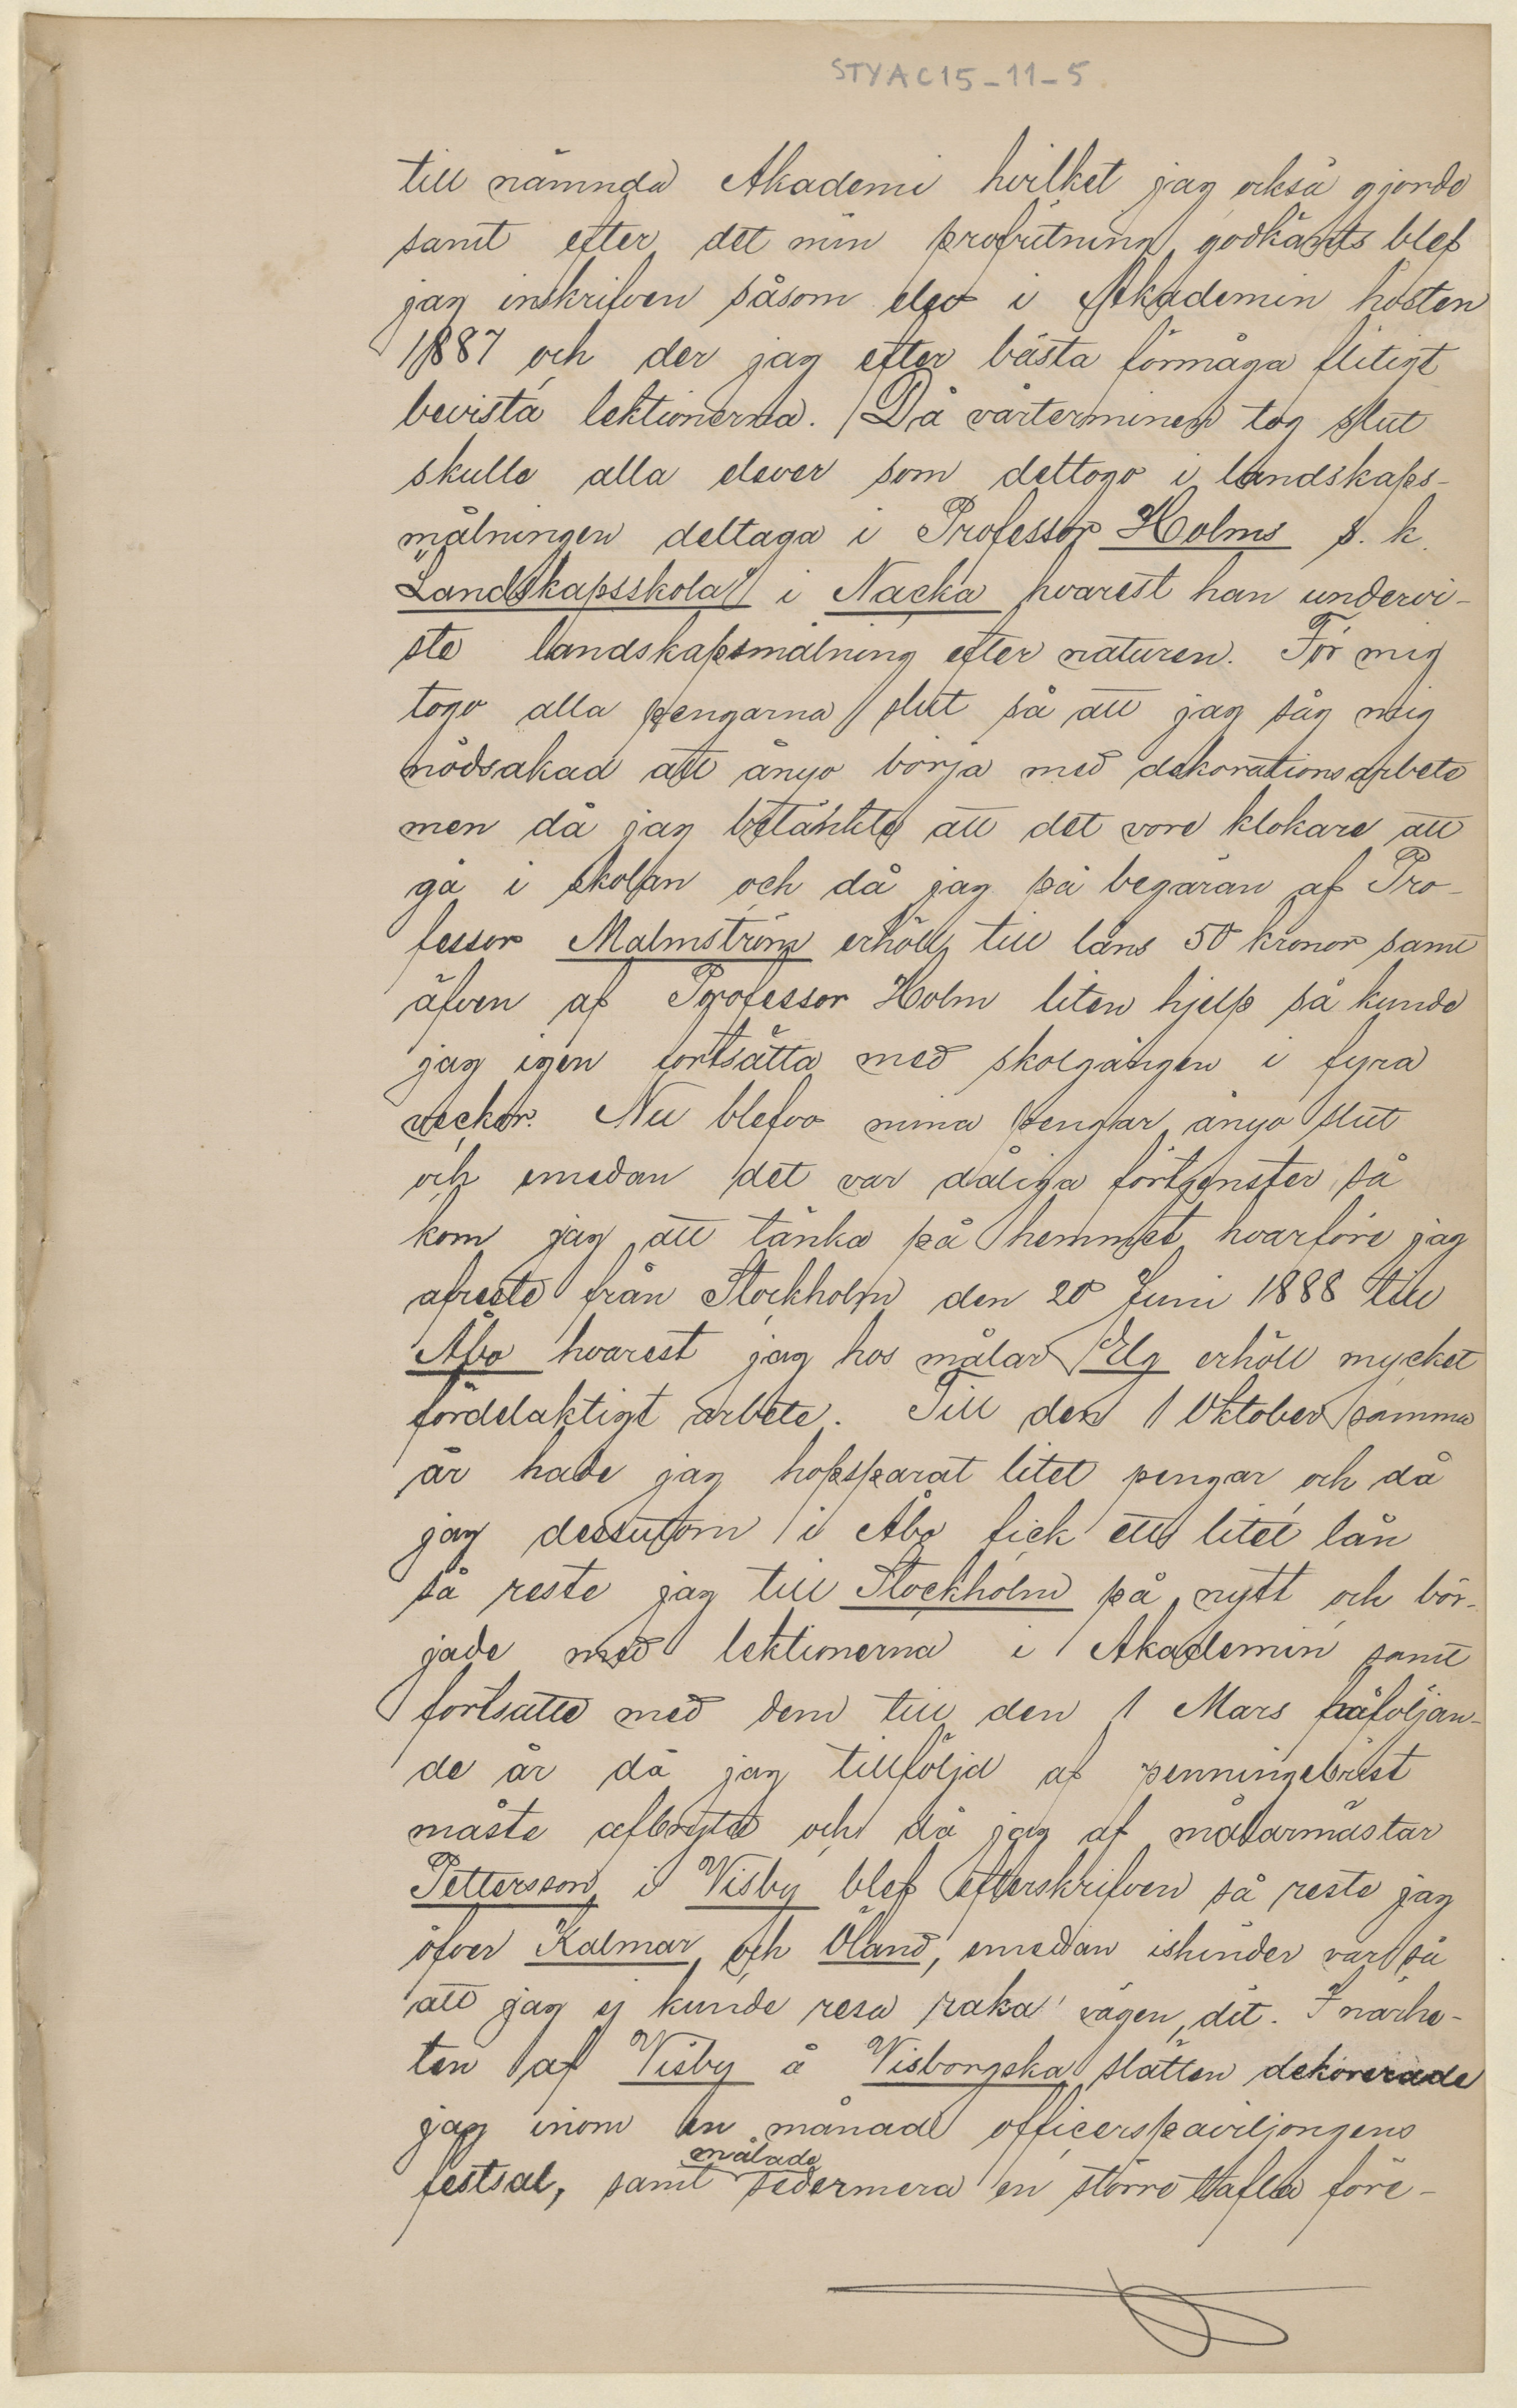 STYAC15-11-5
till nämnda Akademi hvilket jag också gjorde
samt efter det min profritning godkänts blef
jag inskrifven såsom elev i Akademin hösten
1887 och der jag efter bästa förmåga flitigt
bevista lektionerna. Då vårterminen tog slut
skulle alla elever som deltogo i landskaps-
målningen deltaga i Professor Holms s. k.
"Landskapsskola" i Nacka hvarest han undervi-
ste landskapsmålning efter naturen. För mig
togo alla pengarna slut så att jag såg mig
nödsakad att ånyo börja med dekorationsarbete
men då jag betänkte att det vore klokare att
gå i skolan och då jag på begäran af Pro-
fessor Malmström erhöll till låns 50 kronor samt
äfven af Professor Holm liten hjelp så kunde
jag igen fortsätta med skolgången i fyra
veckor. Nu blefvo mina pengar ånyo slut
och emedan det var dåliga förtjenster så
kom jag att tänka på hemmet hvarföre jag
afreste från Stockholm den 20 Juni 1888 till
Åbo hvarest jag hos målar Elg erhöll mycket
fördelaktigt arbete. Till den 1 Oktober samma
år hade jag hopsparat litet pengar och då
jag dessutom i Åbo fick ett litet lån
så reste jag till Stockholm på nytt och bör-
jade med lektionerna i Akademin samt
fortsatte med dem till den 1 Mars påföljan-
de år då jag tillföljd af penningebrist
måste afbryta och då jag af målarmästar
Pettersson i Visby blef efterskrifven så reste jag
öfver Kalmar och Öland, emedan ishinder var så
att jag ej kunde resa raka vägen dit. I närhe-
ten af Visby å Visborgska slätten dekorerade
jag inom en månad officerspaviljongens
målade
festsal, samt sedermera en större tafla före-